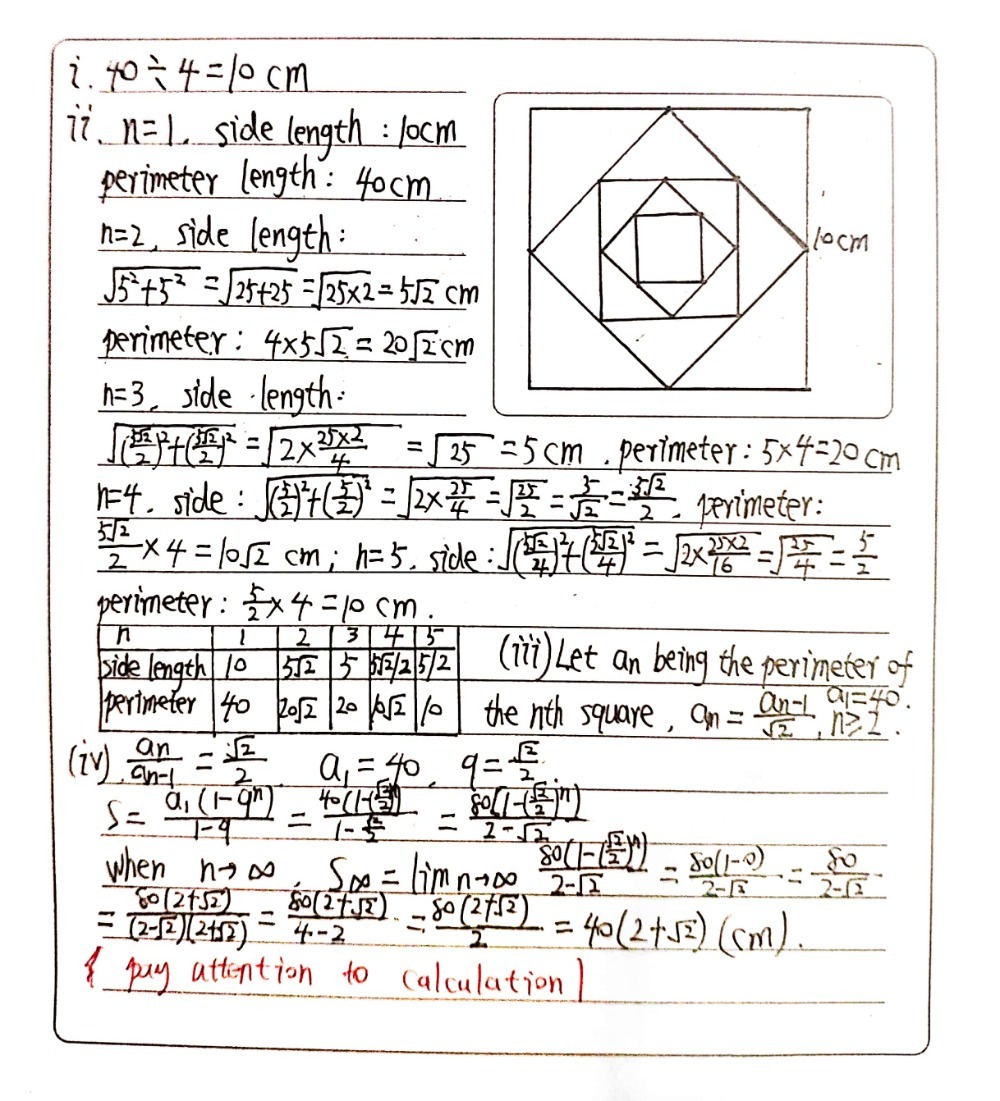 i. 40÷4=10 cm
ii. n=1. side length : 10cm
perimeter length: 40cm
n=2, side length:
√(5²+5²) = √(25+25) = √(25×2) = 5√2 cm
10cm
perimeter: 4×5√2 = 20√2 cm
n=3, side length:
√((5√2/2)²+(5√2/2)²) = √(2×(25×2)/4) = √25 = 5 cm . perimeter: 5×4=20 cm
n=4. side : √((5/2)²+(5/2)²) = √(2×25/4) = √(25/2) = 5/√2 = 5√2/2 . perimeter:
5√2/2 × 4 = 10√2 cm ; n=5. side : √((5√2/4)²+(5√2/4)²) = √(2×(25×2)/16) = √(25/4) = 5/2
perimeter: 5/2 × 4 = 10 cm.
n 1 2 3 4 5
side length 10 5√2 5 5√2/2 5/2
perimeter 40 20√2 20 10√2 10
(iii) Let an being the perimeter of
the nth square, an = an-1/√2, a1=40. n≥2.
(iv). an/an-1 = √2/2 a1 = 40, q = √2/2.
S = a1(1-qⁿ)/(1-q) = 40(1-(√2/2)ⁿ)/(1-√2/2) = 80[1-(√2/2)ⁿ]/(2-√2)
when n→∞, S∞ = lim n→∞ 80(1-(√2/2)ⁿ)/(2-√2) = 80(1-0)/(2-√2) = 80/(2-√2)
= 80(2+√2)/((2-√2)(2+√2)) = 80(2+√2)/(4-2) = 80(2+√2)/2 = 40(2+√2) (cm).
{ pay attention to calculation }